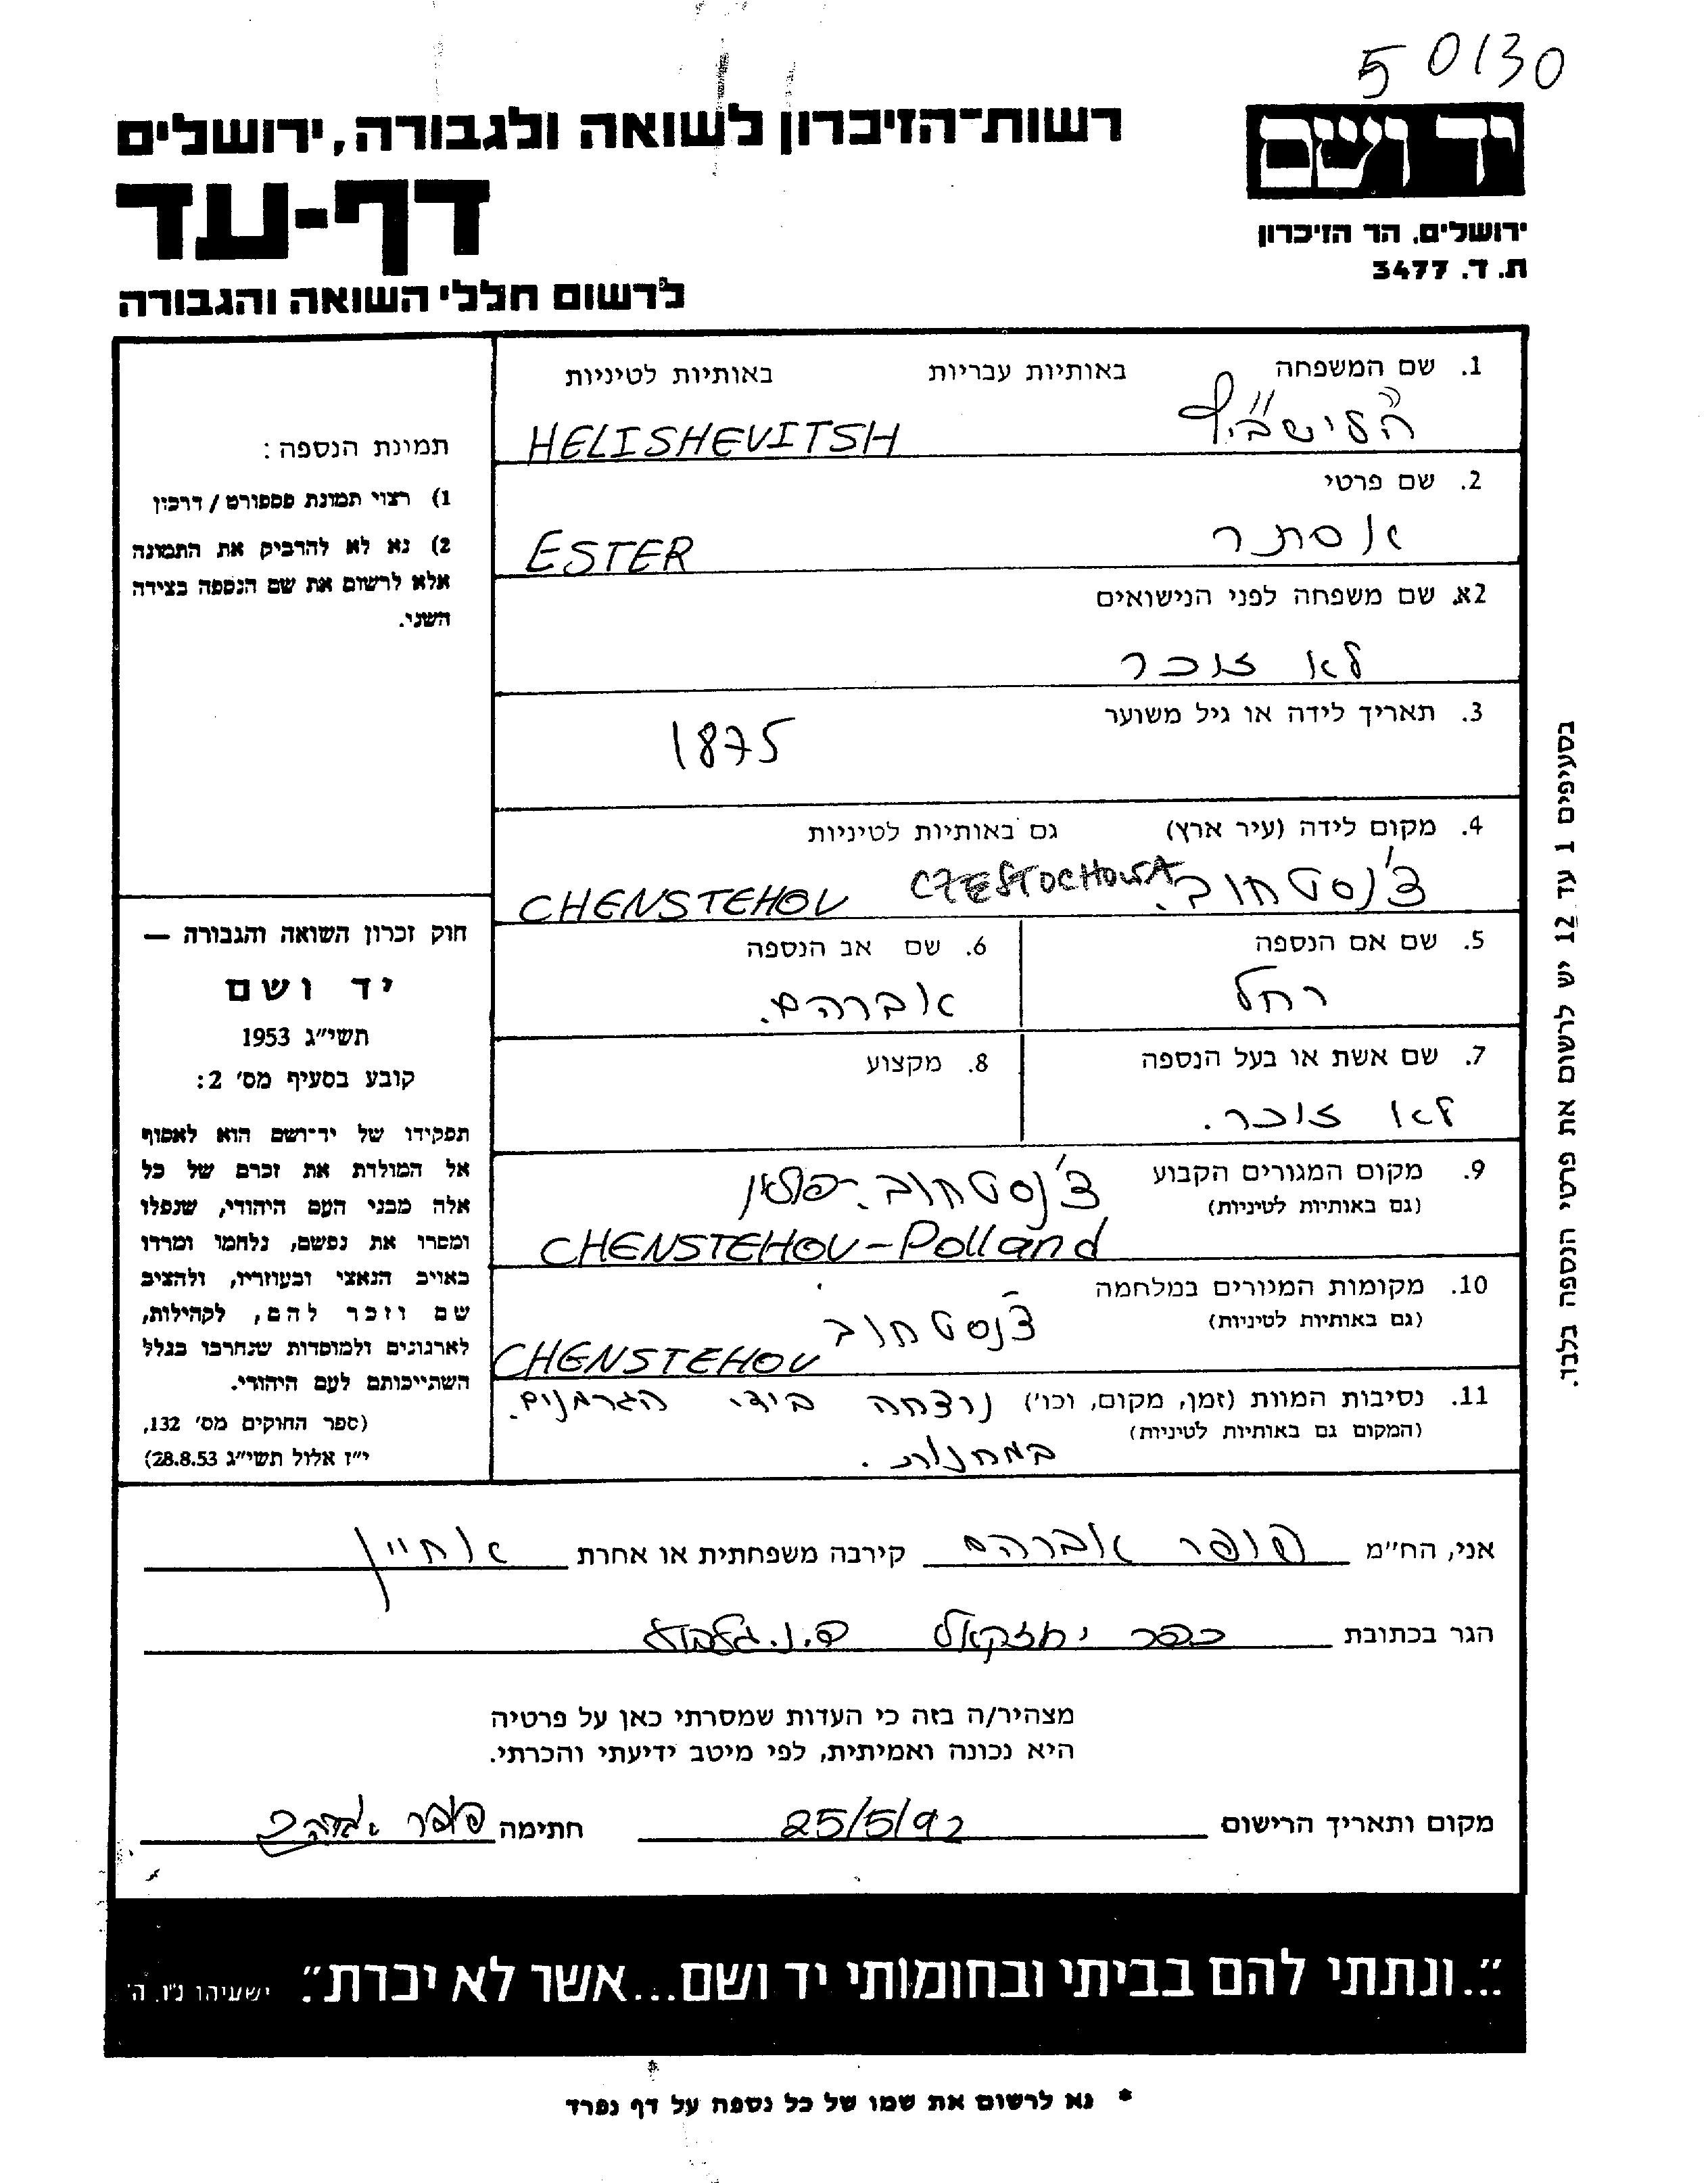 50130
רשות-הזיכרון לשואה ולגבורה, ירושלים
יד ושם
דף-עד
ירושלים, הר הזיכרון
ת. ד. 3477
לרשום חללי השואה והגבורה
1. שם המשפחה באותיות עבריות באותיות לטיניות
HELISHEVITSH
2. שם פרטי
אסתר ESTER
2א. שם משפחה לפני הנישואים
לא זוכר
3. תאריך לידה או גיל משוער
1875
4. מקום לידה (עיר ארץ) גם באותיות לטיניות
צ'נסטחוב. CZESTOCHOWA CHENSTEHOV
5. שם אם הנספה 6. שם אב הנספה
רחל אברהם.
7. שם אשת או בעל הנספה 8. מקצוע
לא זוכר.
9. מקום המגורים הקבוע צ'נסטחוב. פולין
(גם באותיות לטיניות)
CHENSTEHOV-Polland
10. מקומות המגורים במלחמה
(גם באותיות לטיניות) צ'נסטחוב
CHENSTEHOV
11. נסיבות המוות (זמן, מקום, וכו') נרצחה בידי הגרמנים.
(המקום גם באותיות לטיניות)
במחנות.
תמונת הנספה:
1) רצוי תמונת פספורט / דרכון
2) נא לא להדביק את התמונה
אלא לרשום את שם הנספה בצידה
השני.
חוק זכרון השואה והגבורה —
יד ושם
תשי"ג 1953
קובע בסעיף מס' 2:
תפקידו של יד-ושם הוא לאסוף
אל המולדת את זכרם של כל
אלה מבני העם היהודי, שנפלו
ומסרו את נפשם, נלחמו ומרדו
באויב הנאצי ובעוזריו, ולהציב
שם וזכר להם, לקהילות,
לארגונים ולמוסדות שנחרבו בגלל
השתייכותם לעם היהודי.
(ספר החוקים מס' 132,
י"ז אלול תשי"ג 28.8.53)
בסעיפים 1 עד 12 יש לרשום את פרטי הנספה בלבד.
אני, הח"מ סופר אברהם קירבה משפחתית או אחרת אחיין
הגר בכתובת כפר יחזקאל ד.נ. גלבוע
מצהיר/ה בזה כי העדות שמסרתי כאן על פרטיה
היא נכונה ואמיתית, לפי מיטב ידיעתי והכרתי.
מקום ותאריך הרישום 25/5/92 חתימה סופר אברהם
"...ונתתי להם בביתי ובחומותי יד ושם...אשר לא יכרת". ישעיהו נ"ו, ה'
* נא לרשום את שמו של כל נספה על דף נפרד